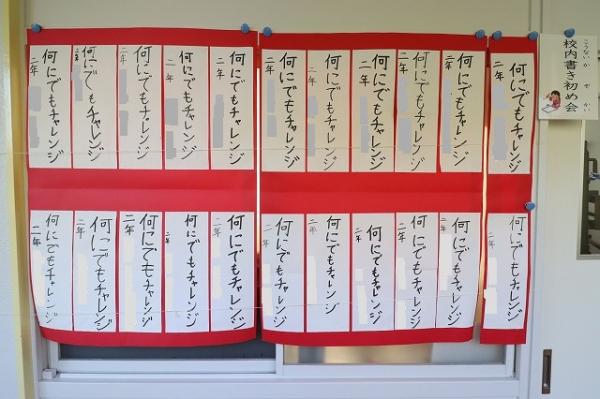 こうないか ぞ かい
校内書き初め会
何にでもチャレンジ
二年
何にでもチャレンジ
二年
何にでもチャレンジ
二年
何にでもチャレンジ
二年
何にでもチャレンジ
二年
何にでもチャレンジ
二年
何にでもチャレンジ
二年
何にでもチャレンジ
二年
何にでもチャレンジ
二年
何にでもチャレンジ
二年
何にでもチャレンジ
二年
何にでもチャレンジ
二年
何にでもチャレンジ
二年
何にでもチャレンジ
二年
何にでもチャレンジ
二年
何にでもチャレンジ
二年
何にでもチャレンジ
二年
何にでもチャレンジ
二年
何にでもチャレンジ
二年
何にでもチャレンジ
二年
何にでもチャレンジ
二年
何にでもチャレンジ
二年